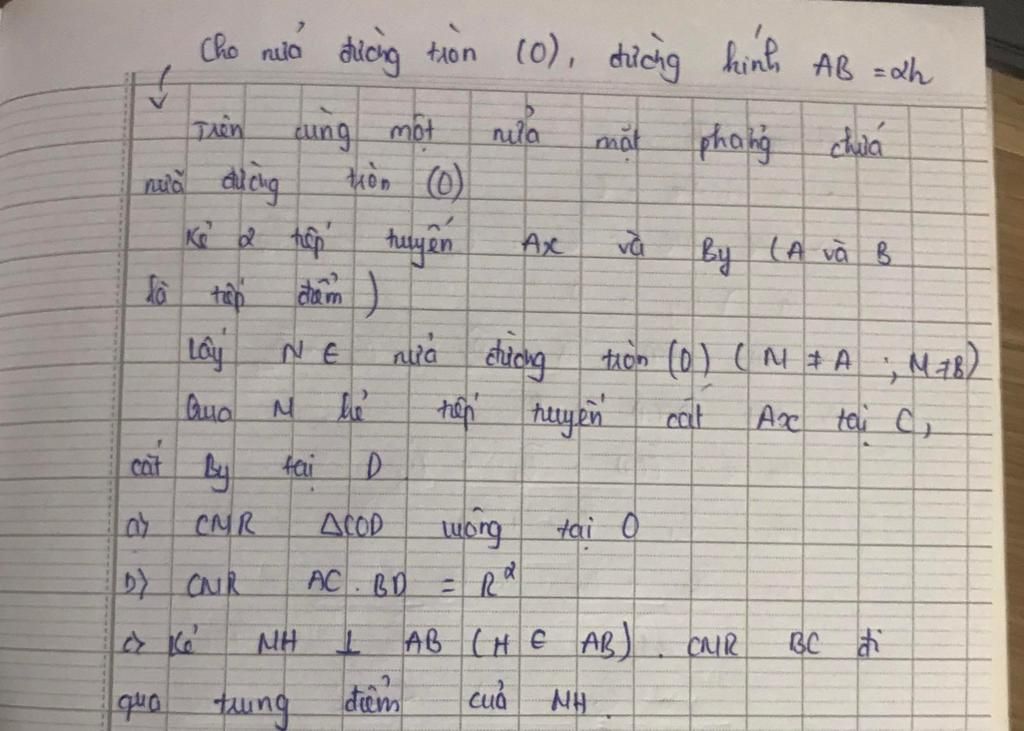 Cho nửa đường tròn (O), đường kính AB = 2R
Trên cùng một nửa mặt phẳng chứa
nửa đường tròn (O)
Kẻ 2 tiếp tuyến Ax và By (A và B
là tiếp điểm)
Lấy M ∈ nửa đường tròn (O) (M ≠ A ; M ≠ B)
Qua M kẻ tiếp tuyến cắt Ax tại C,
cắt By tại D
a) CMR ΔCOD vuông tại O
b) CMR AC . BD = R²
c) Kẻ MH ⊥ AB (H ∈ AB). CMR BC đi
qua trung điểm của MH.